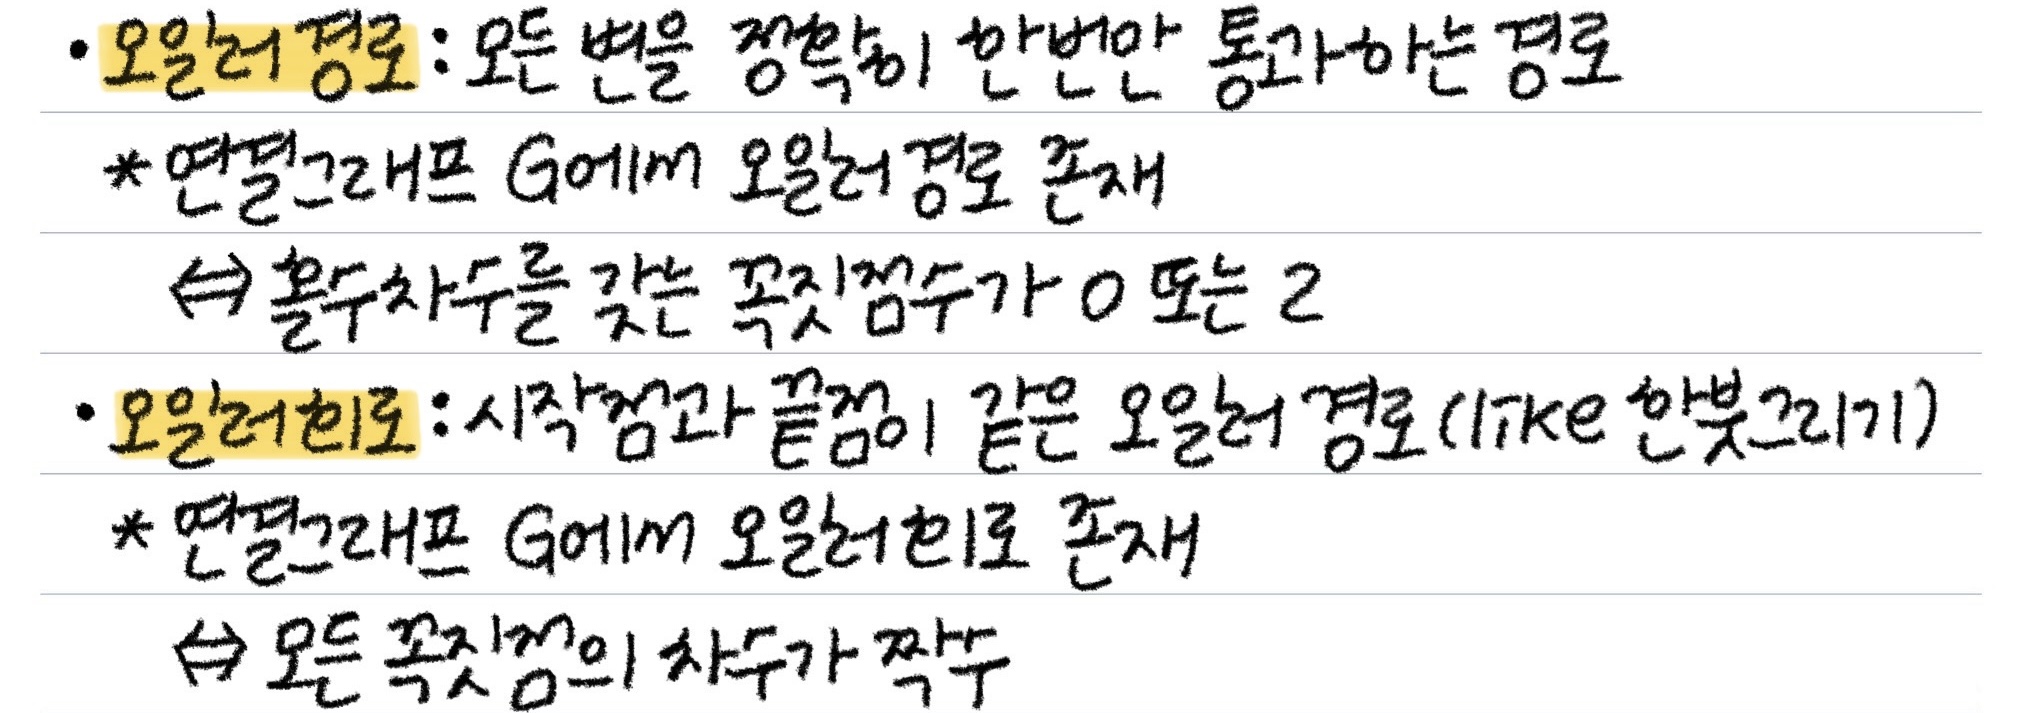 • 오일러 경로 : 모든 변을 정확히 한번만 통과하는 경로
* 연결그래프 G에서 오일러 경로 존재
⇔ 홀수차수를 갖는 꼭짓점수가 0 또는 2
• 오일러 회로 : 시작점과 끝점이 같은 오일러 경로 (like 한붓그리기)
* 연결그래프 G에서 오일러 회로 존재
⇔ 모든 꼭짓점의 차수가 짝수